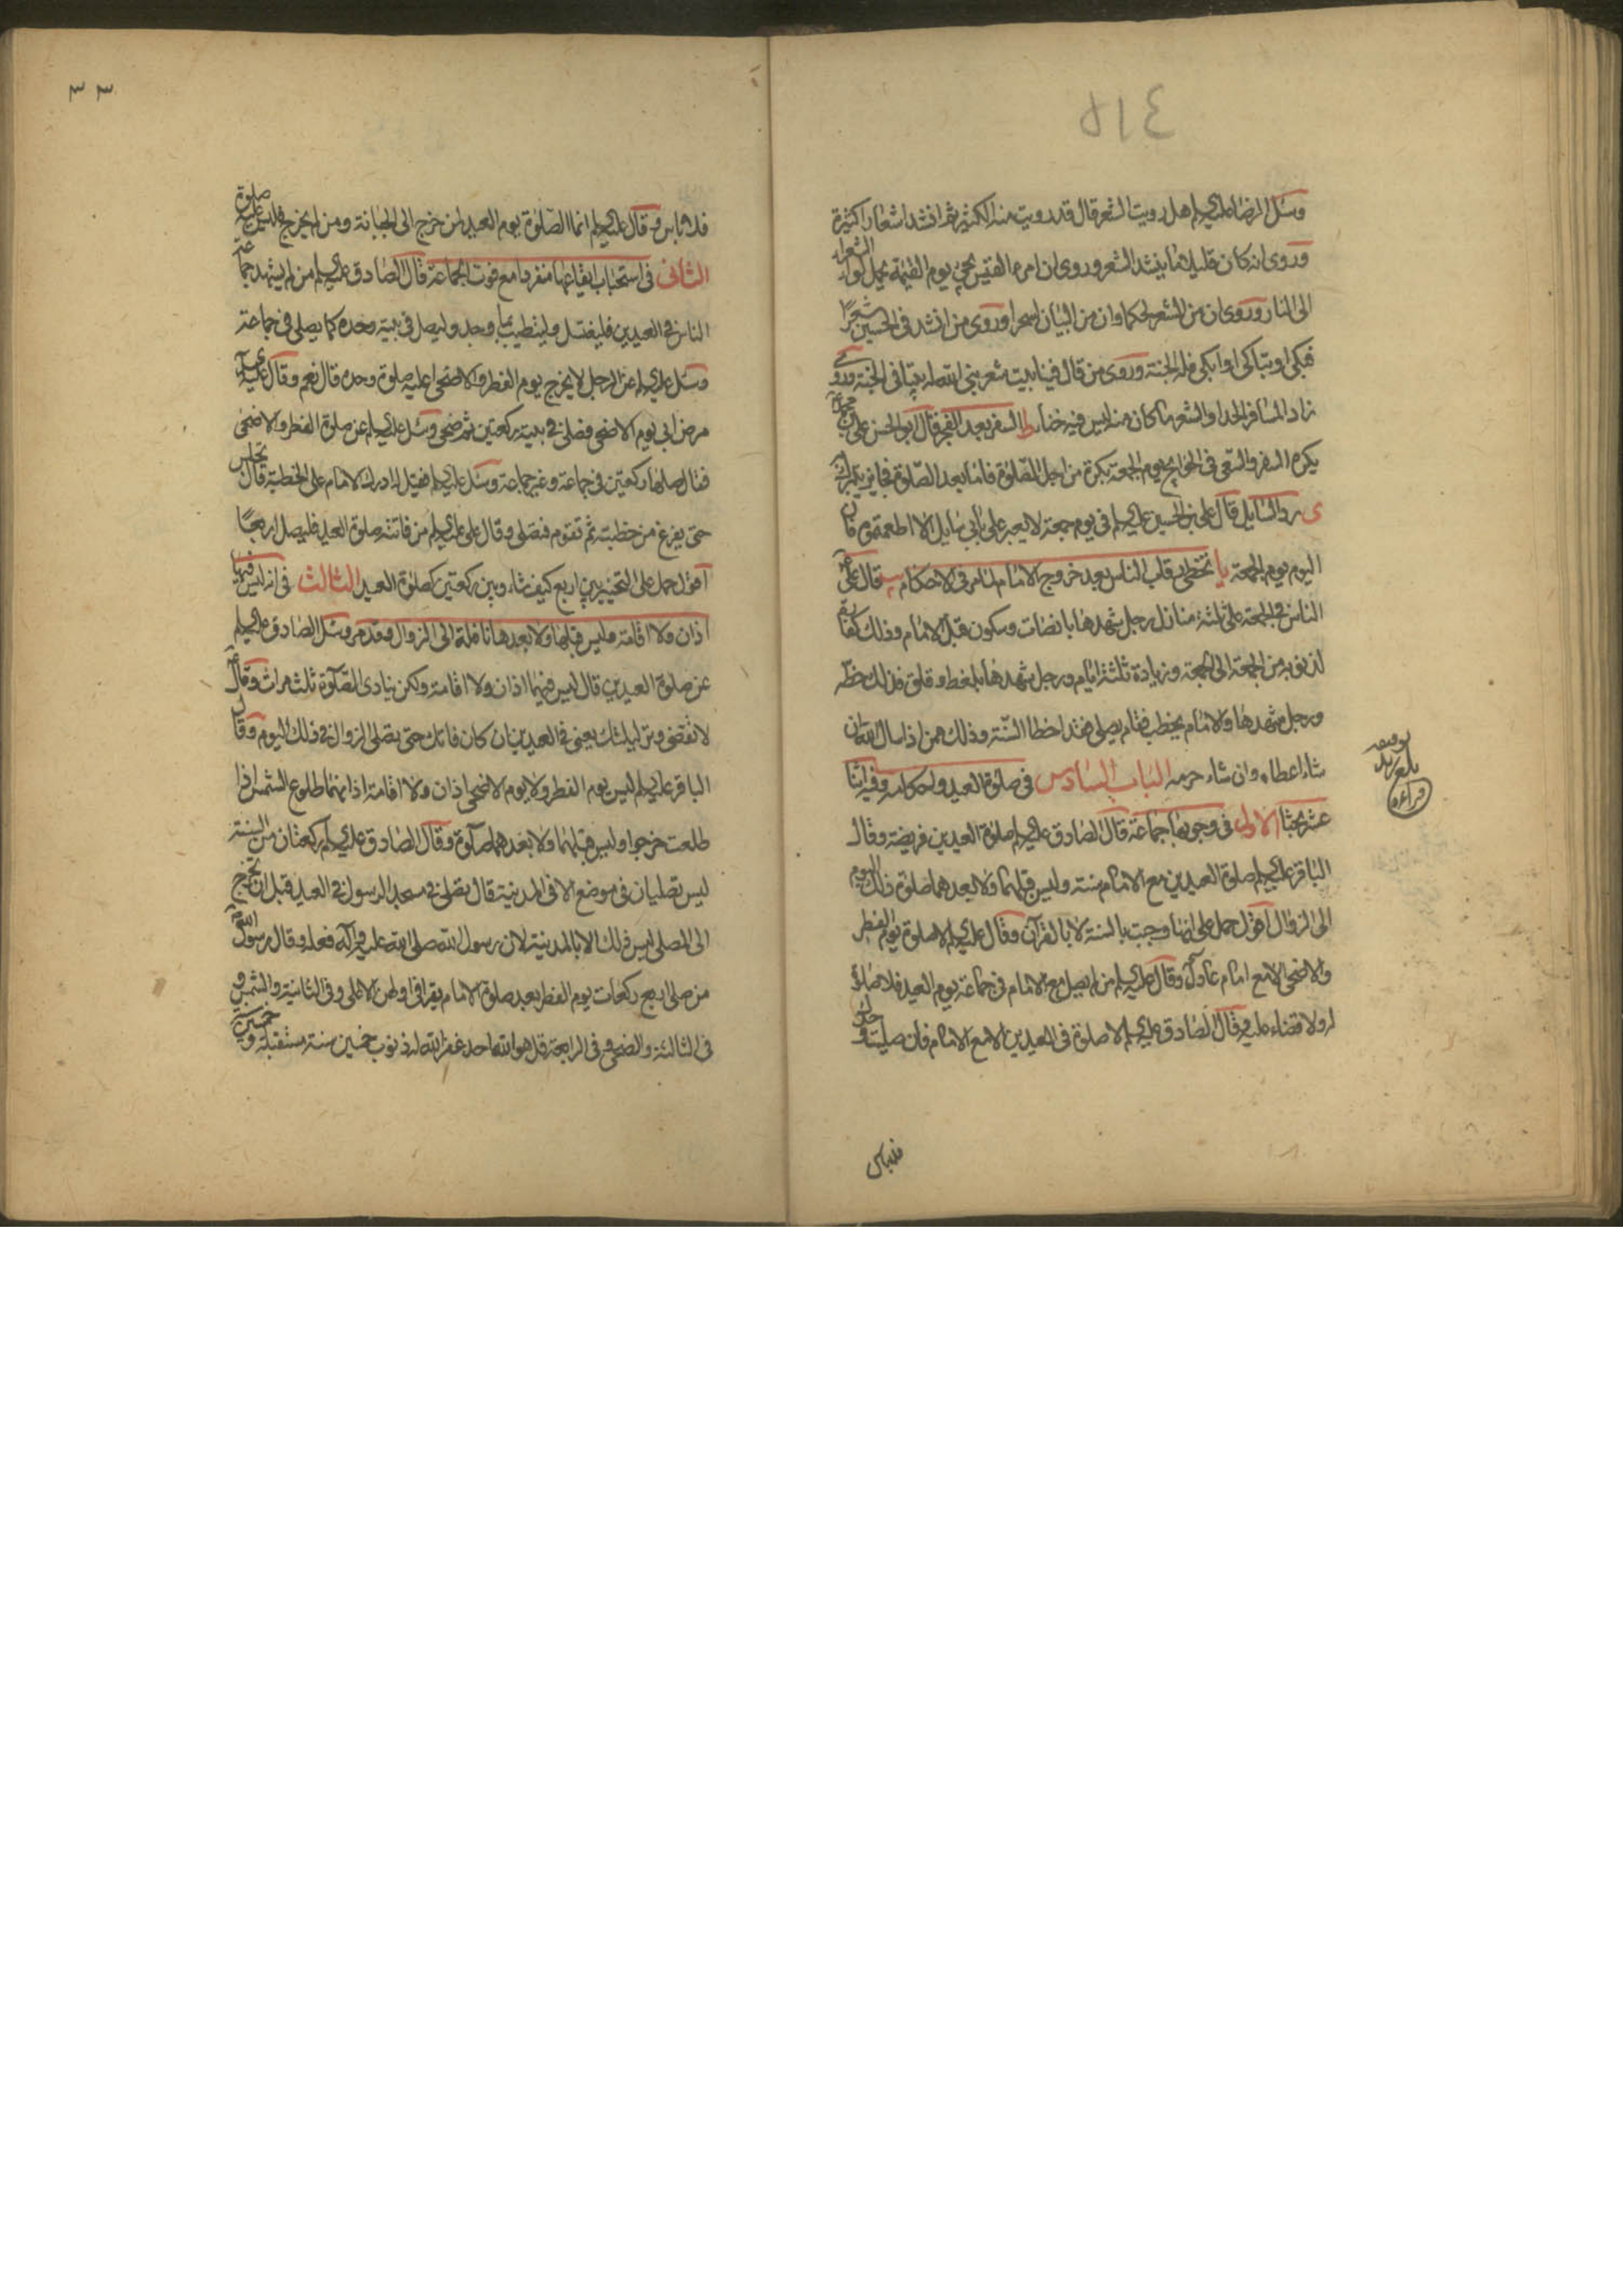 ٥١٤
وسئل الرضا عليه السلم هل رويت الشعر قال قد رويت منه الكثير ثم انشد اشعارا كثيرة
وروى انه كان قليلا ما ينشد الشعر وروى ان امرء القيس يجئ يوم القيمة يحمل لواء الشعراء
الى النار وروى ان من الشعر لحكما وان من البيان لسحرا وروى من انشد فى الحسين شعرا
فبكى او تباكى او ابكى فله الجنة وروى من قال فينا بيت شعر بنى الله له بيتا فى الجنة وروى
زاد المسافر الحدا والشعر ما كان منه ليس فيه خنا ط السفر بعد الفجر قال ابو الحسن على بن محمد
يكره السفر والسعى فى الحوايج يوم الجمعة بكرة من اجل الصلوة فاما بعد الصلوة فجايز يتبرك به
ى رد السايل قال على بن الحسين عليه السلم فى يوم جمعة لا يعبر على بابى سايل الا اطعمتموه فان
اليوم يوم الجمعة يا تخطى رقاب الناس بعد خروج الامام لما مر فى الاحكام يب قال على
الناس فى الجمعة على ثلثة منازل رجل شهدها بانصات وسكون قبل الامام وذلك كفارة
لذنوبه من الجمعة الى الجمعة وزيادة ثلثة ايام ورجل شهدها بلغط وقلق فذلك حظه
ورجل شهدها والامام يخطب فقام يصلى فقد اخطا السنة وذلك ممن اذا سال الله ان
شاء اعطاه وان شاء حرمه الباب السادس فى صلوة العيد واحكامه وفيه اثنا
عشر بحثا الاول فى وجوبها جماعة قال الصادق عليه السلم صلوة العيدين فريضة وقال
الباقر عليه السلم صلوة العيدين مع الامام سنة وليس قبلهما ولا بعدهما صلوة ذلك اليوم
الى الزوال اقول حمل على انها وجبت بالسنة لا بالقرآن وقال عليه السلم لا صلوة يوم الفطر
والاضحى الا مع امام عادل وقال عليه السلم من لم يصل مع الامام فى جماعة يوم العيد فلا صلوة
له ولا قضاء عليه وقال الصادق عليه السلم لا صلوة فى العيدين الا مع الامام فان صليت وحدك
فلا باس
بلغ
قراءة
٣٣
فلا باس وقال عليه السلم انما الصلوة يوم العيد لمن خرج الى الجبانة ومن لم يخرج فليس عليه صلوة
الثانى فى استحباب ايقاعها منفردا مع فوت الجماعة قال الصادق عليه السلم من لم يشهد جماعة
الناس فى العيدين فليغتسل وليتطيب بما وجد وليصل فى بيته وحده كما يصلى فى جماعة
وسئل عليه السلم عن الرجل لا يخرج يوم الفطر والاضحى اعليه صلوة وحده قال نعم وقال عليه السلم
مرض ابى يوم الاضحى فصلى فى بيته ركعتين ثم ضحى وسئل عليه السلم عن صلوة الفطر والاضحى
فقال صلهما ركعتين فى جماعة وغير جماعة وسئل عليه السلم فقيل ادرك الامام على الخطبة قال تجلس
حتى يفرغ من خطبته ثم تقوم فتصلى وقال على عليه السلم من فاتته صلوة العيد فليصل اربعا
اقول حمل على التخيير بين اربع كيف شاء وبين ركعتين كصلوة العيد الثالث فى انه ليس فيها
اذان ولا اقامة وليس قبلها ولا بعدها نافلة الى الزوال وقد مر وسئل الصادق عليه السلم
عن صلوة العيدين قال ليس فيهما اذان ولا اقامة ولكن ينادى الصلوة ثلث مرات وقال
لا تقضى وتر ليلتك يعنى فى العيدين ان كان فاتك حتى تصلى الزوال فى ذلك اليوم وقال
الباقر عليه السلم ليس يوم الفطر ولا يوم الاضحى اذان ولا اقامة اذانهما طلوع الشمس اذا
طلعت خرجوا وليس قبلهما ولا بعدهما صلوة وقال الصادق عليه السلم ركعتان من السنة
ليس تصليان فى موضع الا فى المدينة قال تصلى فى مسجد الرسول فى العيد قبل ان تخرج
الى المصلى ليس ذلك الا بالمدينة لان رسول الله صلى الله عليه وآله فعله وقال رسول الله
من صلى اربع ركعات يوم الفطر بعد صلوة الامام يقرا فى اولهن الاعلى وفى الثانية والشمس و
فى الثالثة والضحى وفى الرابعة قل هو الله احد غفر الله له ذنوب خمسين سنة مستقبلة وخمسين